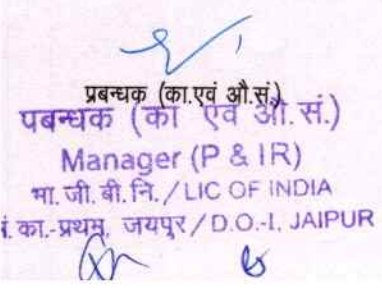 प्रबन्धक (का.एवं औ.सं.)
पबन्धक (का एवं औ. सं.)
Manager (P & IR)
भा. जी. बी. नि. / LIC OF INDIA
मं. का.-प्रथम, जयपुर / D.O.-I, JAIPUR